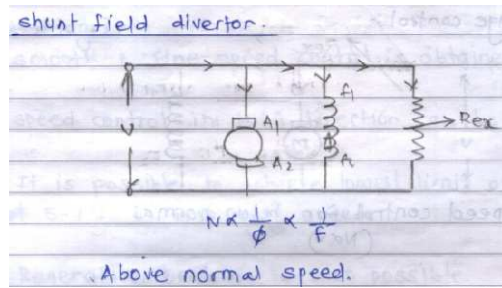 shunt field divertor.
f1
A1
V
Rex
A2
N ∝ 1/φ ∝ 1/f
Above normal speed.